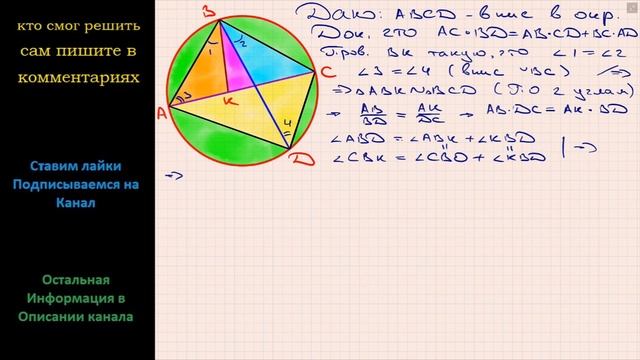 кто смог решить
сам пишите в
комментариях
Ставим лайки
Подписываемся на
Канал
Остальная
Информация в
Описании канала
B
1
2
C
A
3
K
4
D
Дано: ABCD - впис в окр.
Док, что AC·BD=AB·CD+BC·AD
Пров. BK такую, что ∠1=∠2
∠3=∠4 (впис ∪BC) ⇒
⇒ △ABK∾△BCD (по 2 углам)
⇒ AB/BD = AK/DC ⇒ AB·DC = AK·BD
∠ABD = ∠ABK + ∠KBD
∠CBK = ∠CBD + ∠KBD | ⇒
⇒